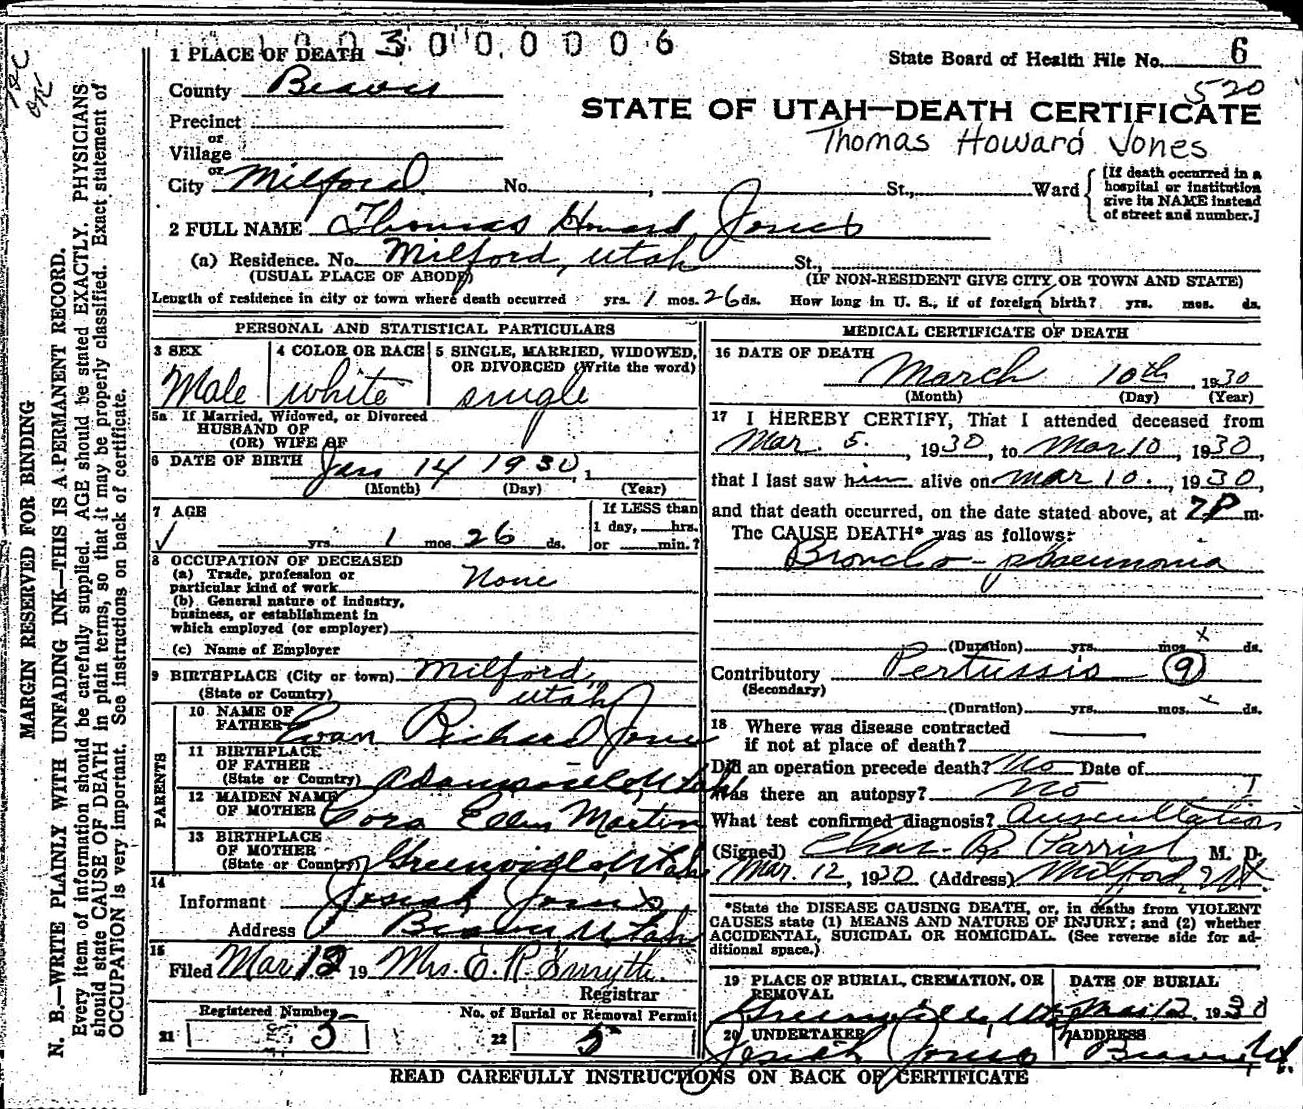 1 PLACE OF DEATH 3 0 0 0 0 0 6
State Board of Health File No. 6
520
County Beaver
STATE OF UTAH—DEATH CERTIFICATE
Precinct
or
Village
Thomas Howard Jones
or
City Milford No. , St., Ward
[If death occurred in a hospital or institution give its NAME instead of street and number.]
2 FULL NAME Thomas Howard Jones
(a) Residence. No. Milford, Utah St.,
(USUAL PLACE OF ABODE) (IF NON-RESIDENT GIVE CITY OR TOWN AND STATE)
Length of residence in city or town where death occurred yrs. 1 mos. 26 ds. How long in U. S., if of foreign birth? yrs. mos. ds.
PERSONAL AND STATISTICAL PARTICULARS
3 SEX Male
4 COLOR OR RACE white
5 SINGLE, MARRIED, WIDOWED, OR DIVORCED (Write the word) single
5a If Married, Widowed, or Divorced
HUSBAND OF
(OR) WIFE OF
6 DATE OF BIRTH Jan 14 1930, 1
(Month) (Day) (Year)
7 AGE
yrs. 1 mos. 26 ds.
If LESS than
1 day, hrs.
or min.?
8 OCCUPATION OF DECEASED
(a) Trade, profession or
particular kind of work None
(b) General nature of industry,
business, or establishment in
which employed (or employer)
(c) Name of Employer
9 BIRTHPLACE (City or town) Milford,
(State or Country) Utah
PARENTS
10 NAME OF
FATHER Evan Richard Jones
11 BIRTHPLACE
OF FATHER
(State or Country) Adamsville, Utah
12 MAIDEN NAME
OF MOTHER Cora Ellen Martin
13 BIRTHPLACE
OF MOTHER
(State or Country) Greenville, Utah
14
Informant Josiah Jones
Address Beaver Utah
15
Filed Mar 12 19 Mrs. E. R. Smyth.
Registrar
Registered Number
21 3
No. of Burial or Removal Permit
22 5
MEDICAL CERTIFICATE OF DEATH
16 DATE OF DEATH
March 10th, 1930
(Month) (Day) (Year)
17 I HEREBY CERTIFY, That I attended deceased from
Mar. 5., 1930, to Mar 10, 1930,
that I last saw him alive on Mar 10., 1930,
and that death occurred, on the date stated above, at 7P m.
The CAUSE DEATH* was as follows:
Broncho-pneumonia
(Duration) yrs. mos. x ds.
Contributory Pertussis 9
(Secondary)
(Duration) yrs. mos. x ds.
18 Where was disease contracted
if not at place of death?
Did an operation precede death? No Date of
Was there an autopsy? No
What test confirmed diagnosis? Auscultation
(Signed) Chas. R. Parrish M. D.
Mar. 12, 1930 (Address) Milford, Ut.
*State the DISEASE CAUSING DEATH, or, in deaths from VIOLENT
CAUSES state (1) MEANS AND NATURE OF INJURY; and (2) whether
ACCIDENTAL, SUICIDAL OR HOMICIDAL. (See reverse side for ad-
ditional space.)
19 PLACE OF BURIAL, CREMATION, OR
REMOVAL
Greenville, Ut
DATE OF BURIAL
Mar 12 1930
20 UNDERTAKER
Josiah Jones
ADDRESS
Beaver Ut.
READ CAREFULLY INSTRUCTIONS ON BACK OF CERTIFICATE
MARGIN RESERVED FOR BINDING
N. B.—WRITE PLAINLY WITH UNFADING INK—THIS IS A PERMANENT RECORD.
Every item of information should be carefully supplied. AGE should be stated EXACTLY. PHYSICIANS
should state CAUSE OF DEATH in plain terms, so that it may be properly classified. Exact statement of
OCCUPATION is very important. See instructions on back of certificate.